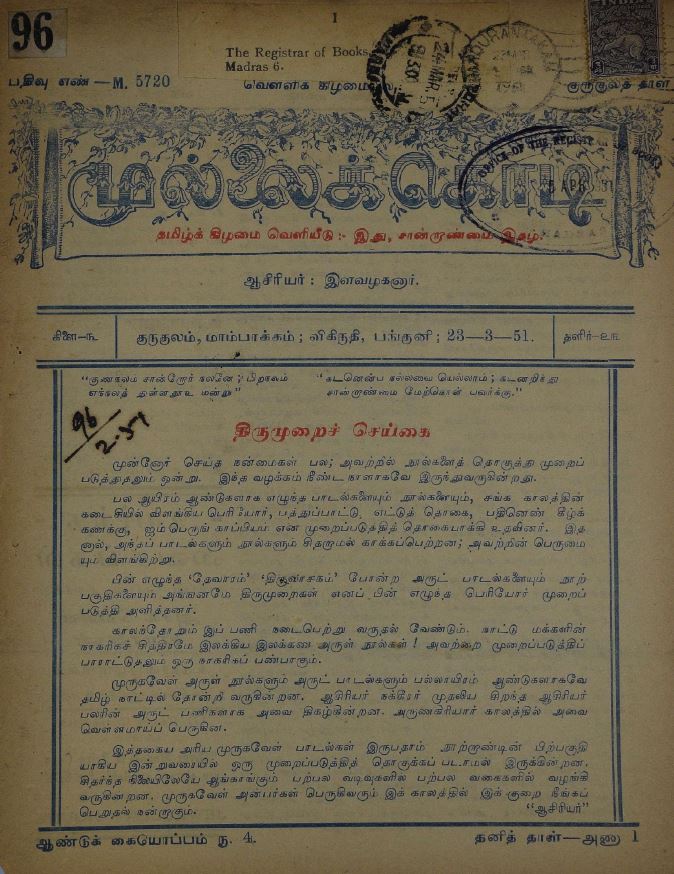 96
1
The Registrar of Books,
Madras 6.
பதிவு எண் —M. 5720
வெள்ளிக் கிழமை
குருகுலத் தாள்
முல்லைக் கொடி
தமிழ்க் கிழமை வெளியீடு :- இது, சான்றாண்மை இதழ்.
ஆசிரியர் : இளவழகனார்.
கிளை-௩
குருகுலம், மாம்பாக்கம் ; விகிருதி, பங்குனி ; 23—3—51.
தளிர்-௨௩
“குணநலம் சான்றோர் நலனே ; பிறநலம்
எந்நலத் துள்ளதூஉ மன்று”
“கடனென்ப நல்லவை யெல்லாம் ; கடனறிந்து
சான்றாண்மை மேற்கொள் பவர்க்கு.”
96
2-51
திருமுறைச் செய்கை
முன்னோர் செய்த நன்மைகள் பல ; அவற்றில் நூல்களைத் தொகுத்து முறைப்
படுத்துதலும் ஒன்று. இந்த வழக்கம் நீண்ட நாளாகவே இருந்துவருகின்றது.
பல ஆயிரம் ஆண்டுகளாக எழுந்த பாடல்களையும் நூல்களையும், சங்க காலத்தின்
கடைசியில் விளங்கிய பெரியோர், பத்துப்பாட்டு, எட்டுத் தொகை, பதினெண் கீழ்க்
கணக்கு, ஐம்பெருங் காப்பியம் என முறைப்படுத்தித் தொகையாக்கி உதவினர். இத
னால், அந்தப் பாடல்களும் நூல்களும் சிதறாமல் காக்கப்பெற்றன ; அவற்றின் பெருமை
யும் விளங்கிற்று.
பின் எழுந்த ‘தேவாரம்’ ‘திருவாசகம்’ போன்ற அருட் பாடல்களையும் நூற்
பகுதிகளையும் அங்ஙனமே திருமுறைகள் எனப் பின் எழுந்த பெரியோர் முறைப்
படுத்தி அளித்தனர்.
காலந்தோறும் இப் பணி நடைபெற்று வருதல் வேண்டும். நாட்டு மக்களின்
நாகரிகச் சித்திரமே இலக்கிய இலக்கண அருள் நூல்கள் ! அவற்றை முறைப்படுத்திப்
பாராட்டுதலும் ஒரு நாகரிகப் பண்பாகும்.
முருகவேள் அருள் நூல்களும் அருட் பாடல்களும் பல்லாயிரம் ஆண்டுகளாகவே
தமிழ் நாட்டில் தோன்றி வருகின்றன. ஆசிரியர் நக்கீரர் முதலிய சிறந்த ஆசிரியர்
பலரின் அருட் பணிகளாக அவை திகழ்கின்றன. அருணகிரியார் காலத்தில் அவை
வெள்ளமாய்ப் பெருகின.
இத்தகைய அரிய முருகவேள் பாடல்கள் இருபதாம் நூற்றாண்டின் பிற்பகுதி
யாகிய இன்றுவரையில் ஒரு முறைப்படுத்தித் தொகுக்கப் படாமல் இருக்கின்றன.
சிதர்ந்த நிலையிலேயே ஆங்காங்கும் பற்பல வடிவுகளில் பற்பல வகைகளில் வழங்கி
வருகின்றன. முருகவேள் அன்பர்கள் பெருகிவரும் இக் காலத்தில் இக் குறை நீங்கப்
பெறுதல் நன்றாகும்.
“ஆசிரியர்”
ஆண்டுக் கையொப்பம் ரு. 4.
தனித் தாள்—அணா 1